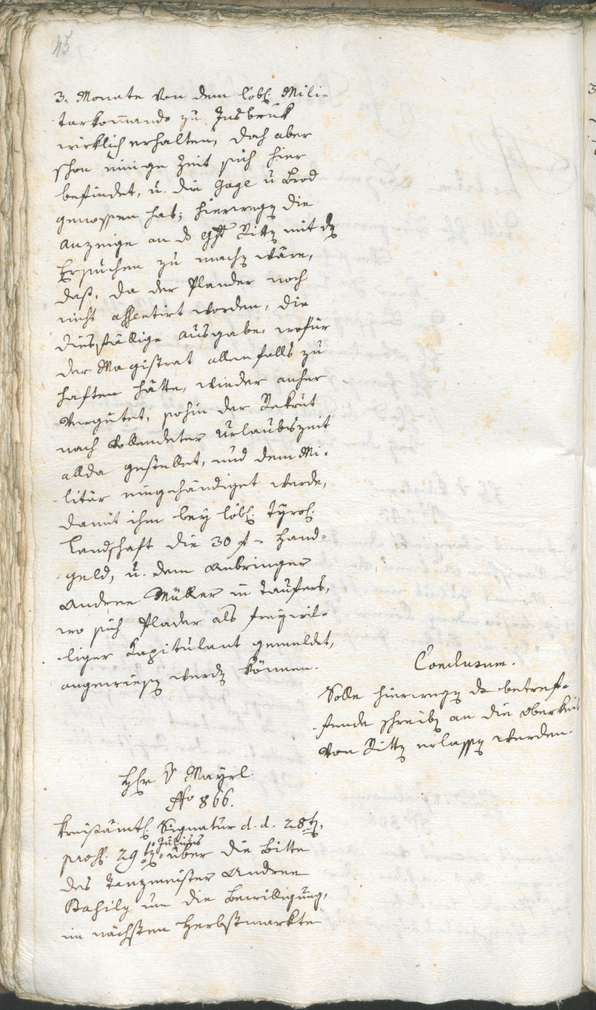 45
3. Monate von dem löbl. Mili-
tarkommando zu Insbruk
wirklich erhalten, doch aber
schon einige Zeit sich hier
befindet, u. die Gage u Brod
genossen hat; hierwegen die
Anzeige an die Hft Sitz mit dem
Ersuchen zu machen wäre,
daß, da der Plander noch
nicht assentirt worden, die
diesfällige Ausgabe, wofür
der Magistrat allenfalls zu
haften hätte, wieder anher
vergütet, sohin der Rekrut
nach vollendeter Urlaubszeit
allda gestellet, und dem Mi-
litär eingehändiget werde,
damit ihm bey löbl. tyrol.
Landschaft die 30 f - Hand-
geld, u. dem Anbringer
Andree Müller in Taufers,
wo sich Plader als freywil-
liger Kapitulant gemeldet,
angewiesen werden können.
Conclusum.
Solle hierwegen das betref-
fende schreiben an die Oberkeit
von Sitz erlassen werden.
Hr v Mayrl
No 866.
Kreisämtl. Signatur d. d. 28ten,
prs. 29ten Julius über die Bitte
des Tanzmeister Andree
um die Bewilligung,
im nächsten Herbstmarkte